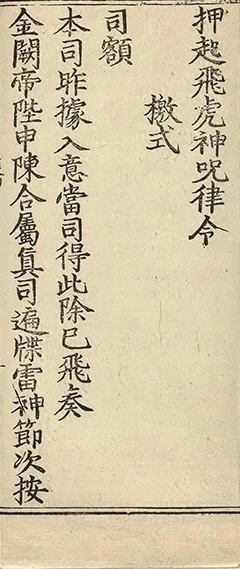 押起飛虎神呪律令
檄式
司額
本司昨據入意當司得此除已飛奏
金闕帝陛申陳合屬真司遍牒雷神節次按